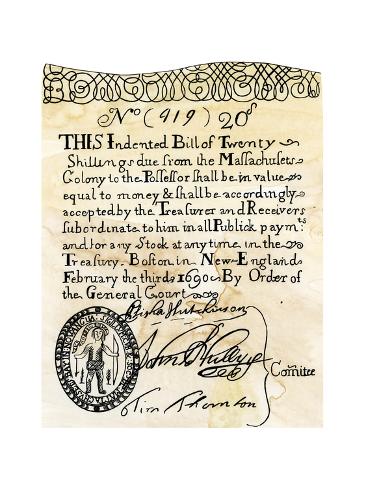 No (919) 20s
THIS Indented Bill of Twenty
Shillings due from the Massachusets
Colony to the Possessor shall be in value
equal to money & shall be accordingly
accepted by the Treasurer and Receivers
subordinate to him in all Publick paymts
and for any Stock at any time in the
Treasury. Boston in New-England
February the third 1690. By Order of
the General Court
Elisha Hutchinson
John
Comitee
Tim Thornton